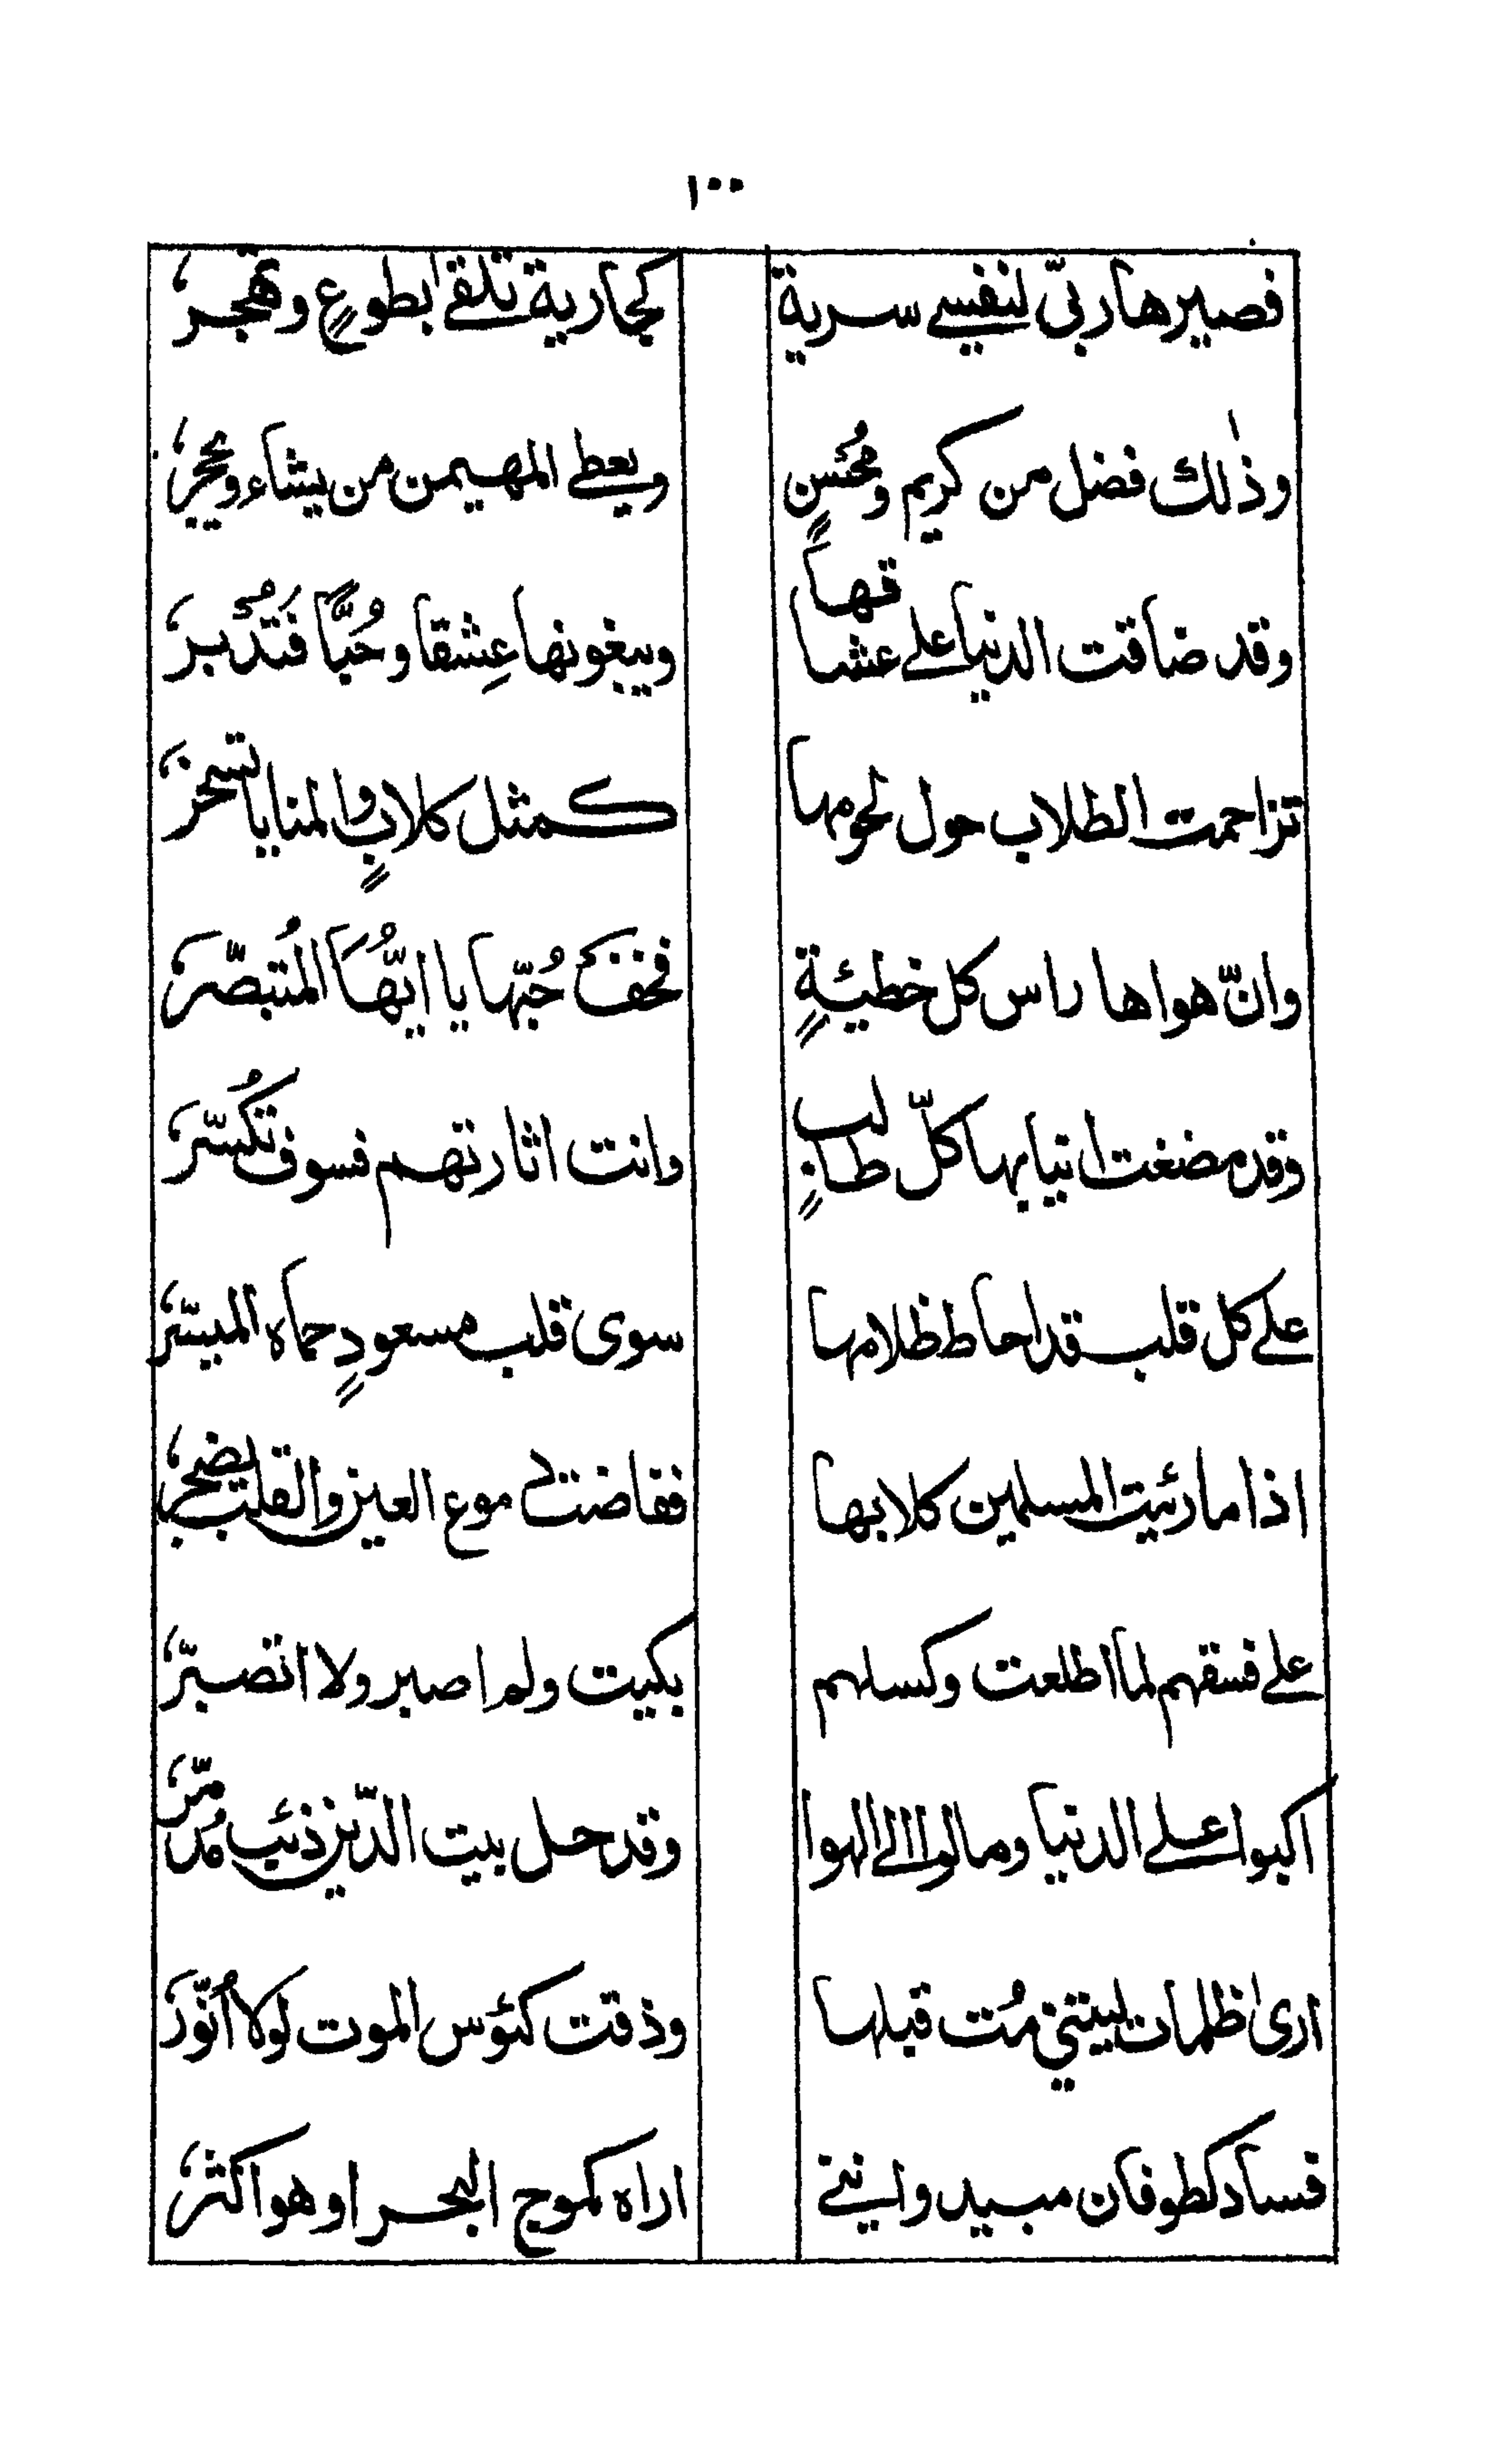 ١٠٠
فصيرها ربيّ لنفسے سرية كجارية تلقٰى بطوعٍ وتهجر،
وذٰلك فضل من كريم ومُحْسنٍ ويعطے المهيمن من يشاء ويحجز،
وقد ضاقت الدنيا علے عشاقها ويبغونها عِشقا وحُبًّا فَتُدْبر،
تزاحمت الطلاب حول لحومها كمثل كلابٍ والمنايا تسخر،
وانّ هواها راس كل خطيئةٍ فخف حُبّها يا ايّهَا المُتبصّر،
وقد مضغت انيابها كلّ طالبٍ وانت اثارتهم فسوف تُكسّر،
علے كل قلب قد احاط ظلامها سوى قلب مسعودٍ حماه الميسّر،
اذا ما رئيت المسلمين كلابها ففاضت دموع العين والقلب يضجر،
علے فسقهم لما اطلعت وكسلهم بكيت ولم اصبر ولا اتصبّر،
اكبوا علے الدنيا ومالوا الى الهوا وقد حل بيت الدّين ذئب مُدمّر،
ارىٰ ظلمات ليتني مُت قبلها وذقت كئوس الموت لولا اُنوّر،
فساد كطوفان مبيد وانني اراه كموج البحر او هو اكثر،